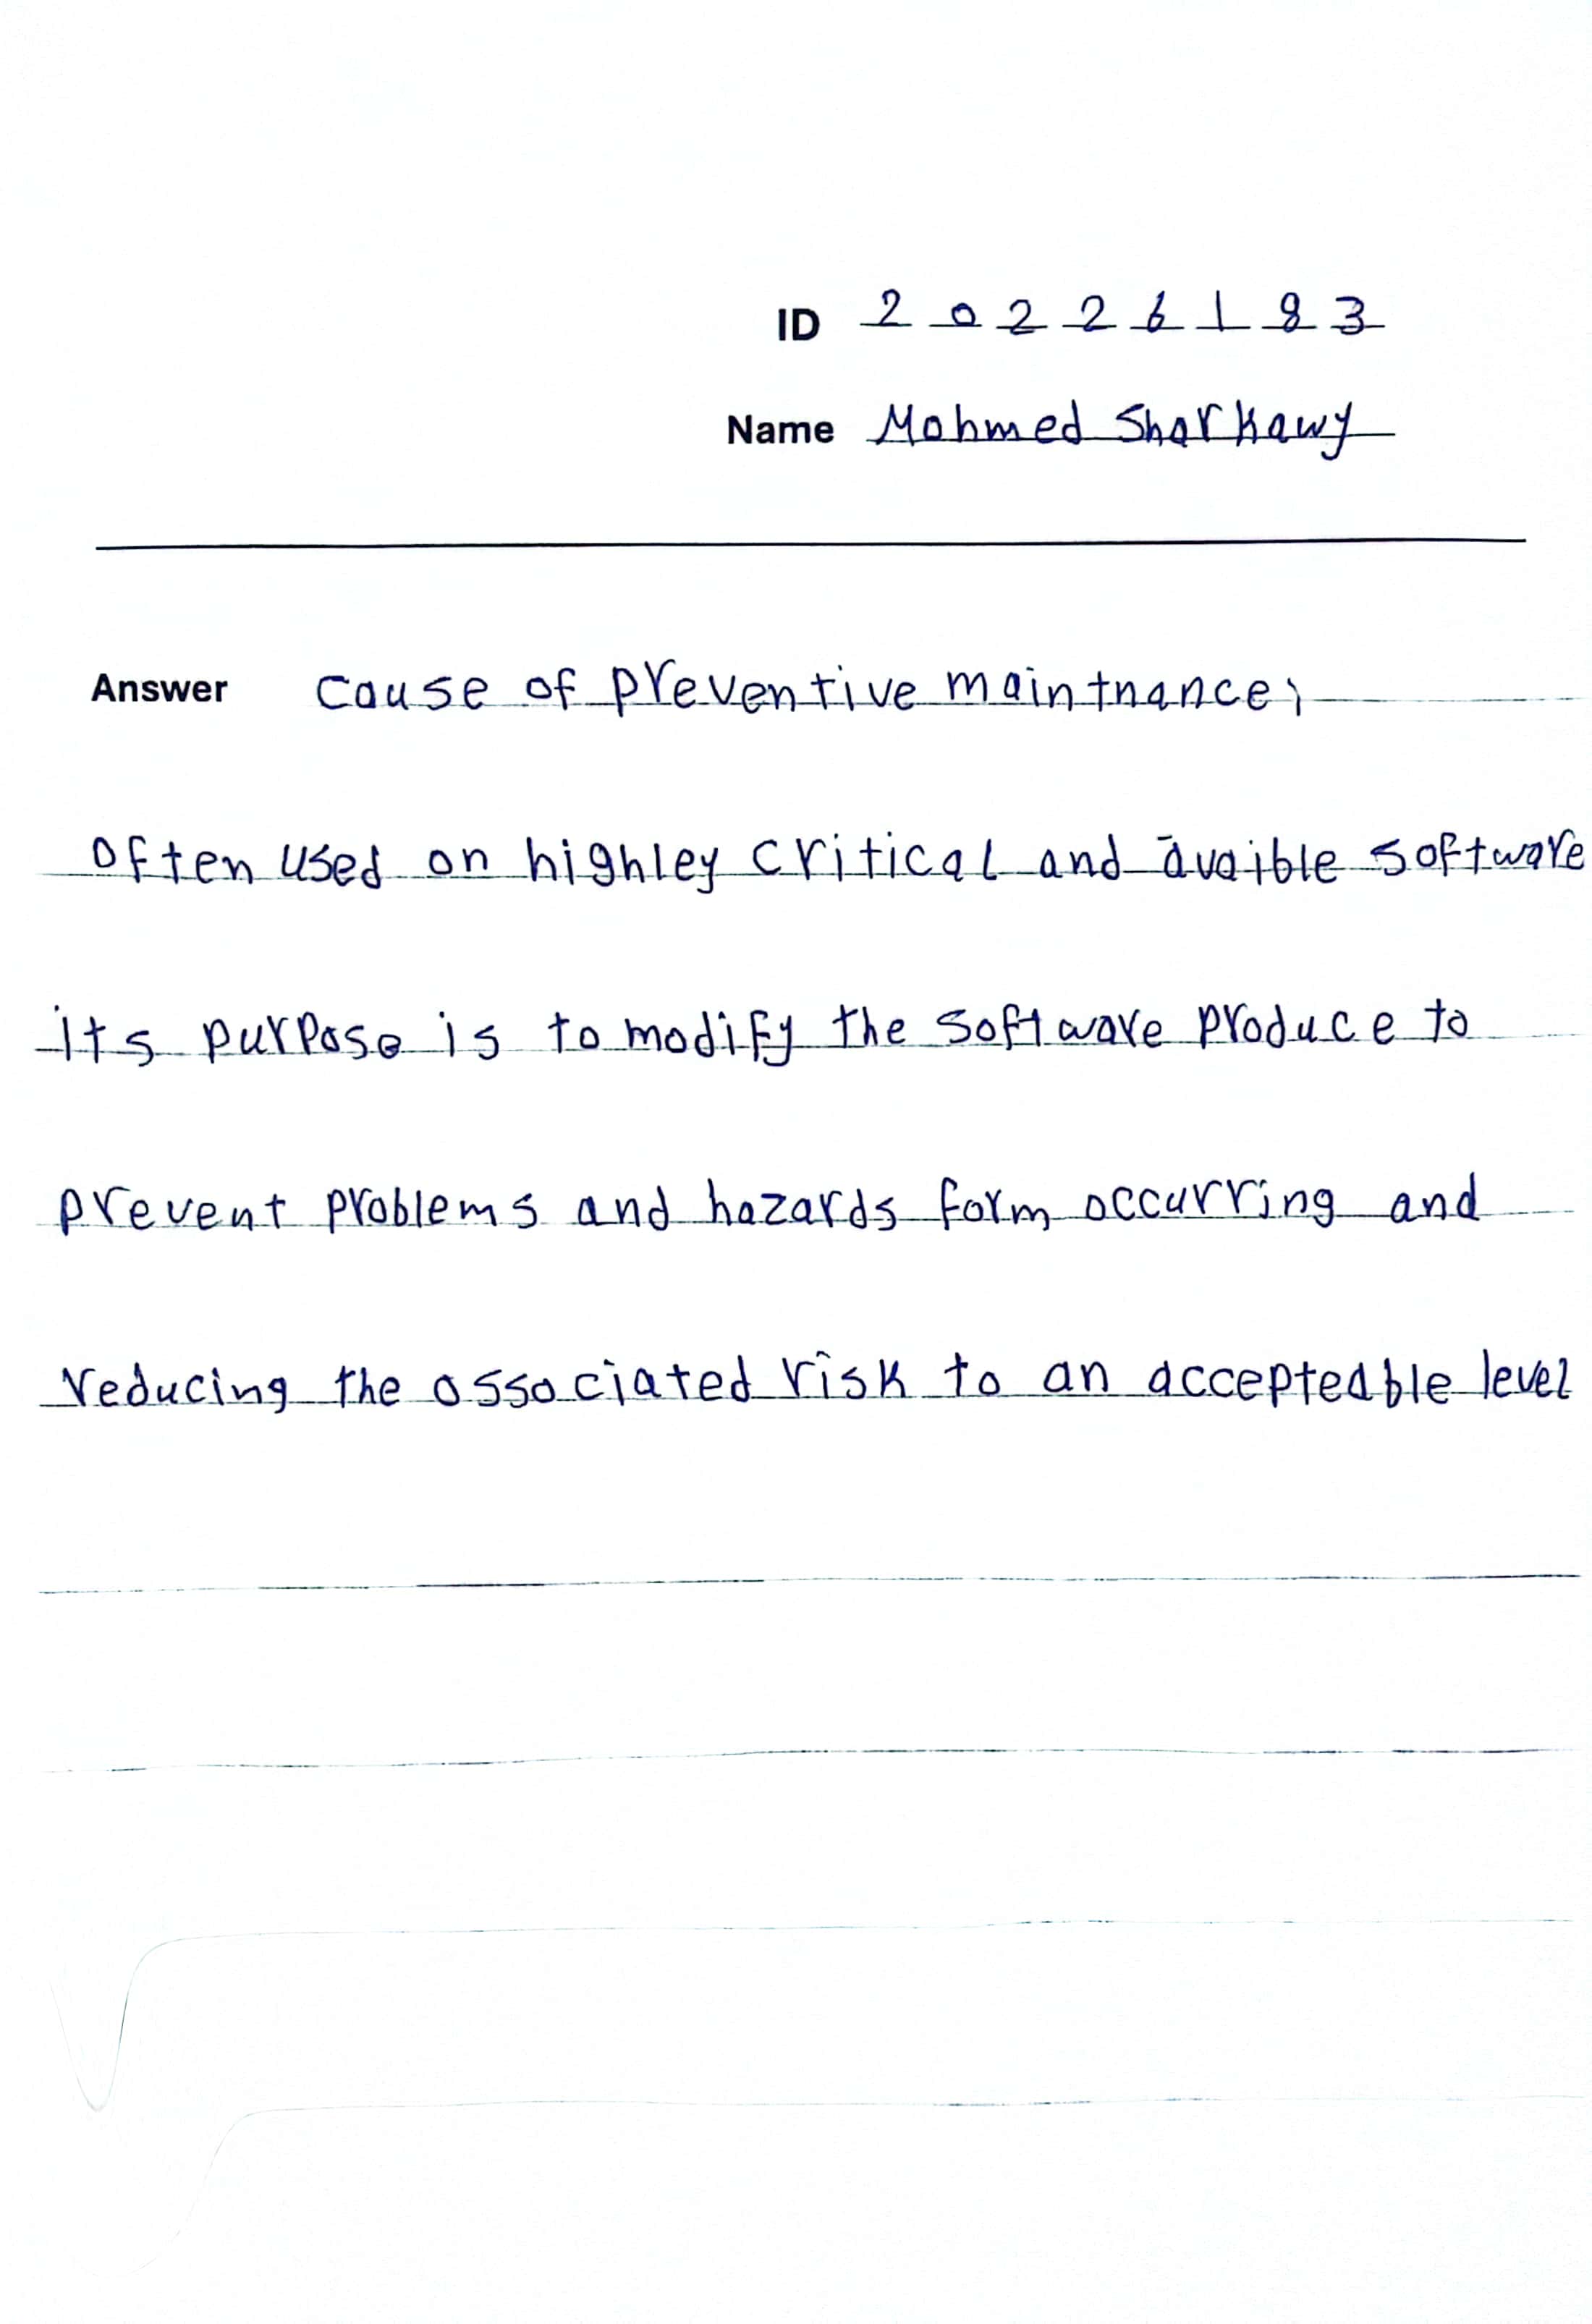 ID 20226183
Name Mohmed Sharkawy
Answer cause of preventive maintnance;
often used on highley critical and avaible software
its purpose is to modify the software produce to
prevent problems and hazards form occurring and
reducing the associated risk to an accepteable level